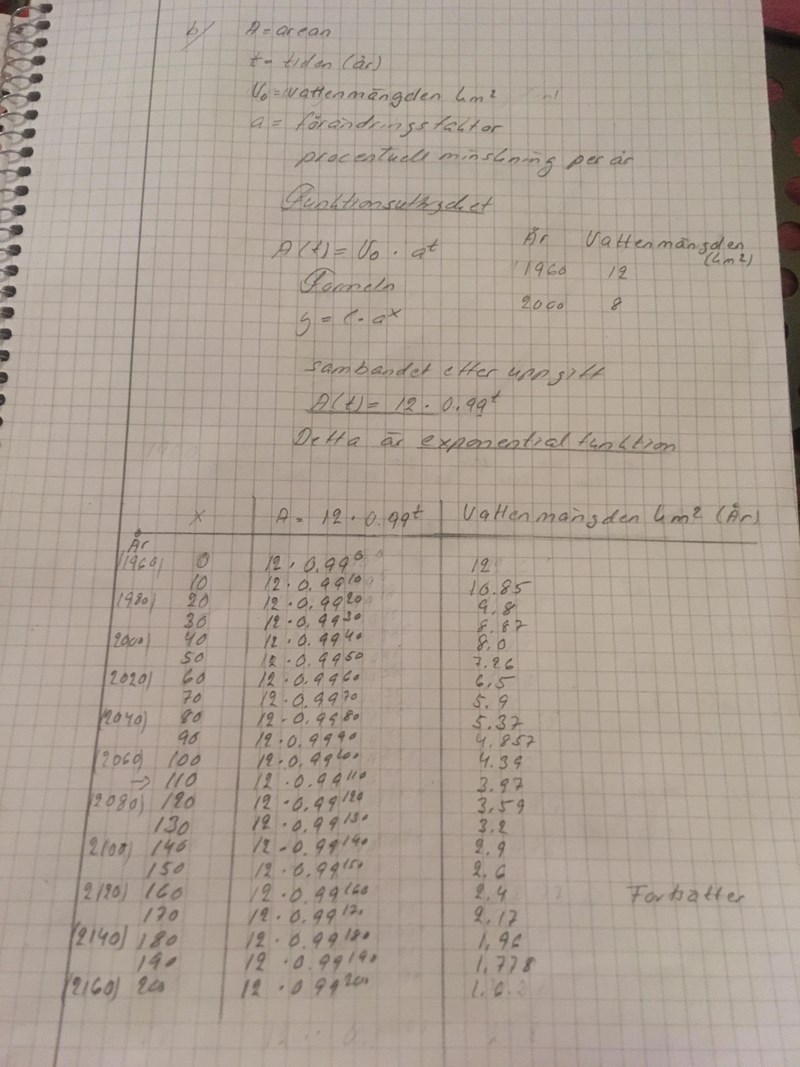 b) A = arean
t = tiden (år)
V₀ = vattenmängden km²
a = förändringsfaktor
procentuell minskning per år
Funktionsuttrycket
A(t) = V₀ · aᵗ
År Vattenmängden (km²)
1960 12
2000 8
Formeln
y = C · aˣ
sambandet efter uppgift
A(t) = 12 · 0.99ᵗ
Detta är exponential funktion
X A = 12 · 0.99ᵗ Vattenmängden km² (År)
År
(1960) 0 12 · 0.99⁰ 12
10 12 · 0.99¹⁰ 10.85
1980) 20 12 · 0.99²⁰ 9.8
30 12 · 0.99³⁰ 8.87
2000) 40 12 · 0.99⁴⁰ 8.0
50 12 · 0.99⁵⁰ 7.26
2020) 60 12 · 0.99⁶⁰ 6.5
70 12 · 0.99⁷⁰ 5.9
(2040) 80 12 · 0.99⁸⁰ 5.37
90 12 · 0.99⁹⁰ 4.857
(2060) 100 12 · 0.99¹⁰⁰ 4.39
→ 110 12 · 0.99¹¹⁰ 3.97
(2080) 120 12 · 0.99¹²⁰ 3.59
130 12 · 0.99¹³⁰ 3.2
2100) 140 12 · 0.99¹⁴⁰ 2.9
150 12 · 0.99¹⁵⁰ 2.6
2120) 160 12 · 0.99¹⁶⁰ 2.4 Fortsätter
170 12 · 0.99¹⁷⁰ 2.17
(2140) 180 12 · 0.99¹⁸⁰ 1,96
190 12 · 0.99¹⁹⁰ 1,778
(2160) 200 12 · 0.99²⁰⁰ 1.6